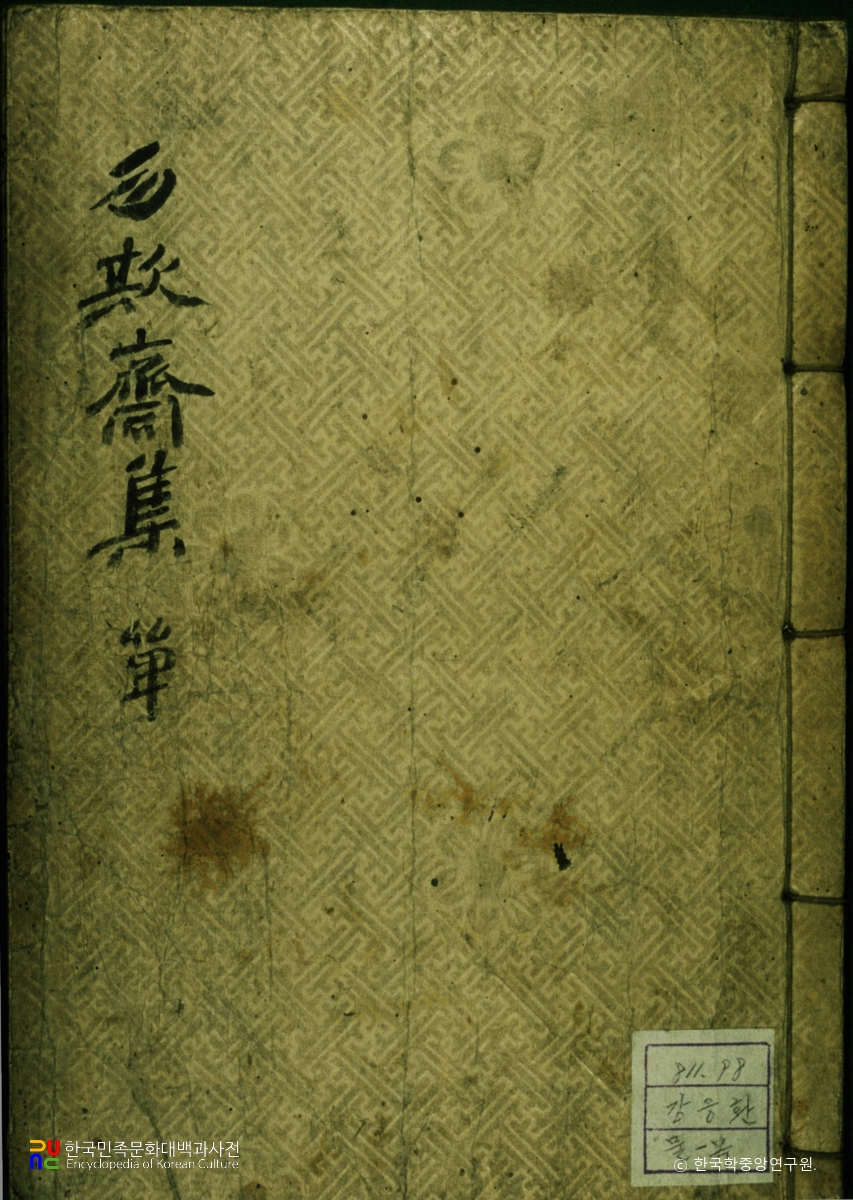 勿欺齋集 單
811.98
강응환
물-무
한국민족문화대백과사전
Encyclopedia of Korean Culture
© 한국학중앙연구원.